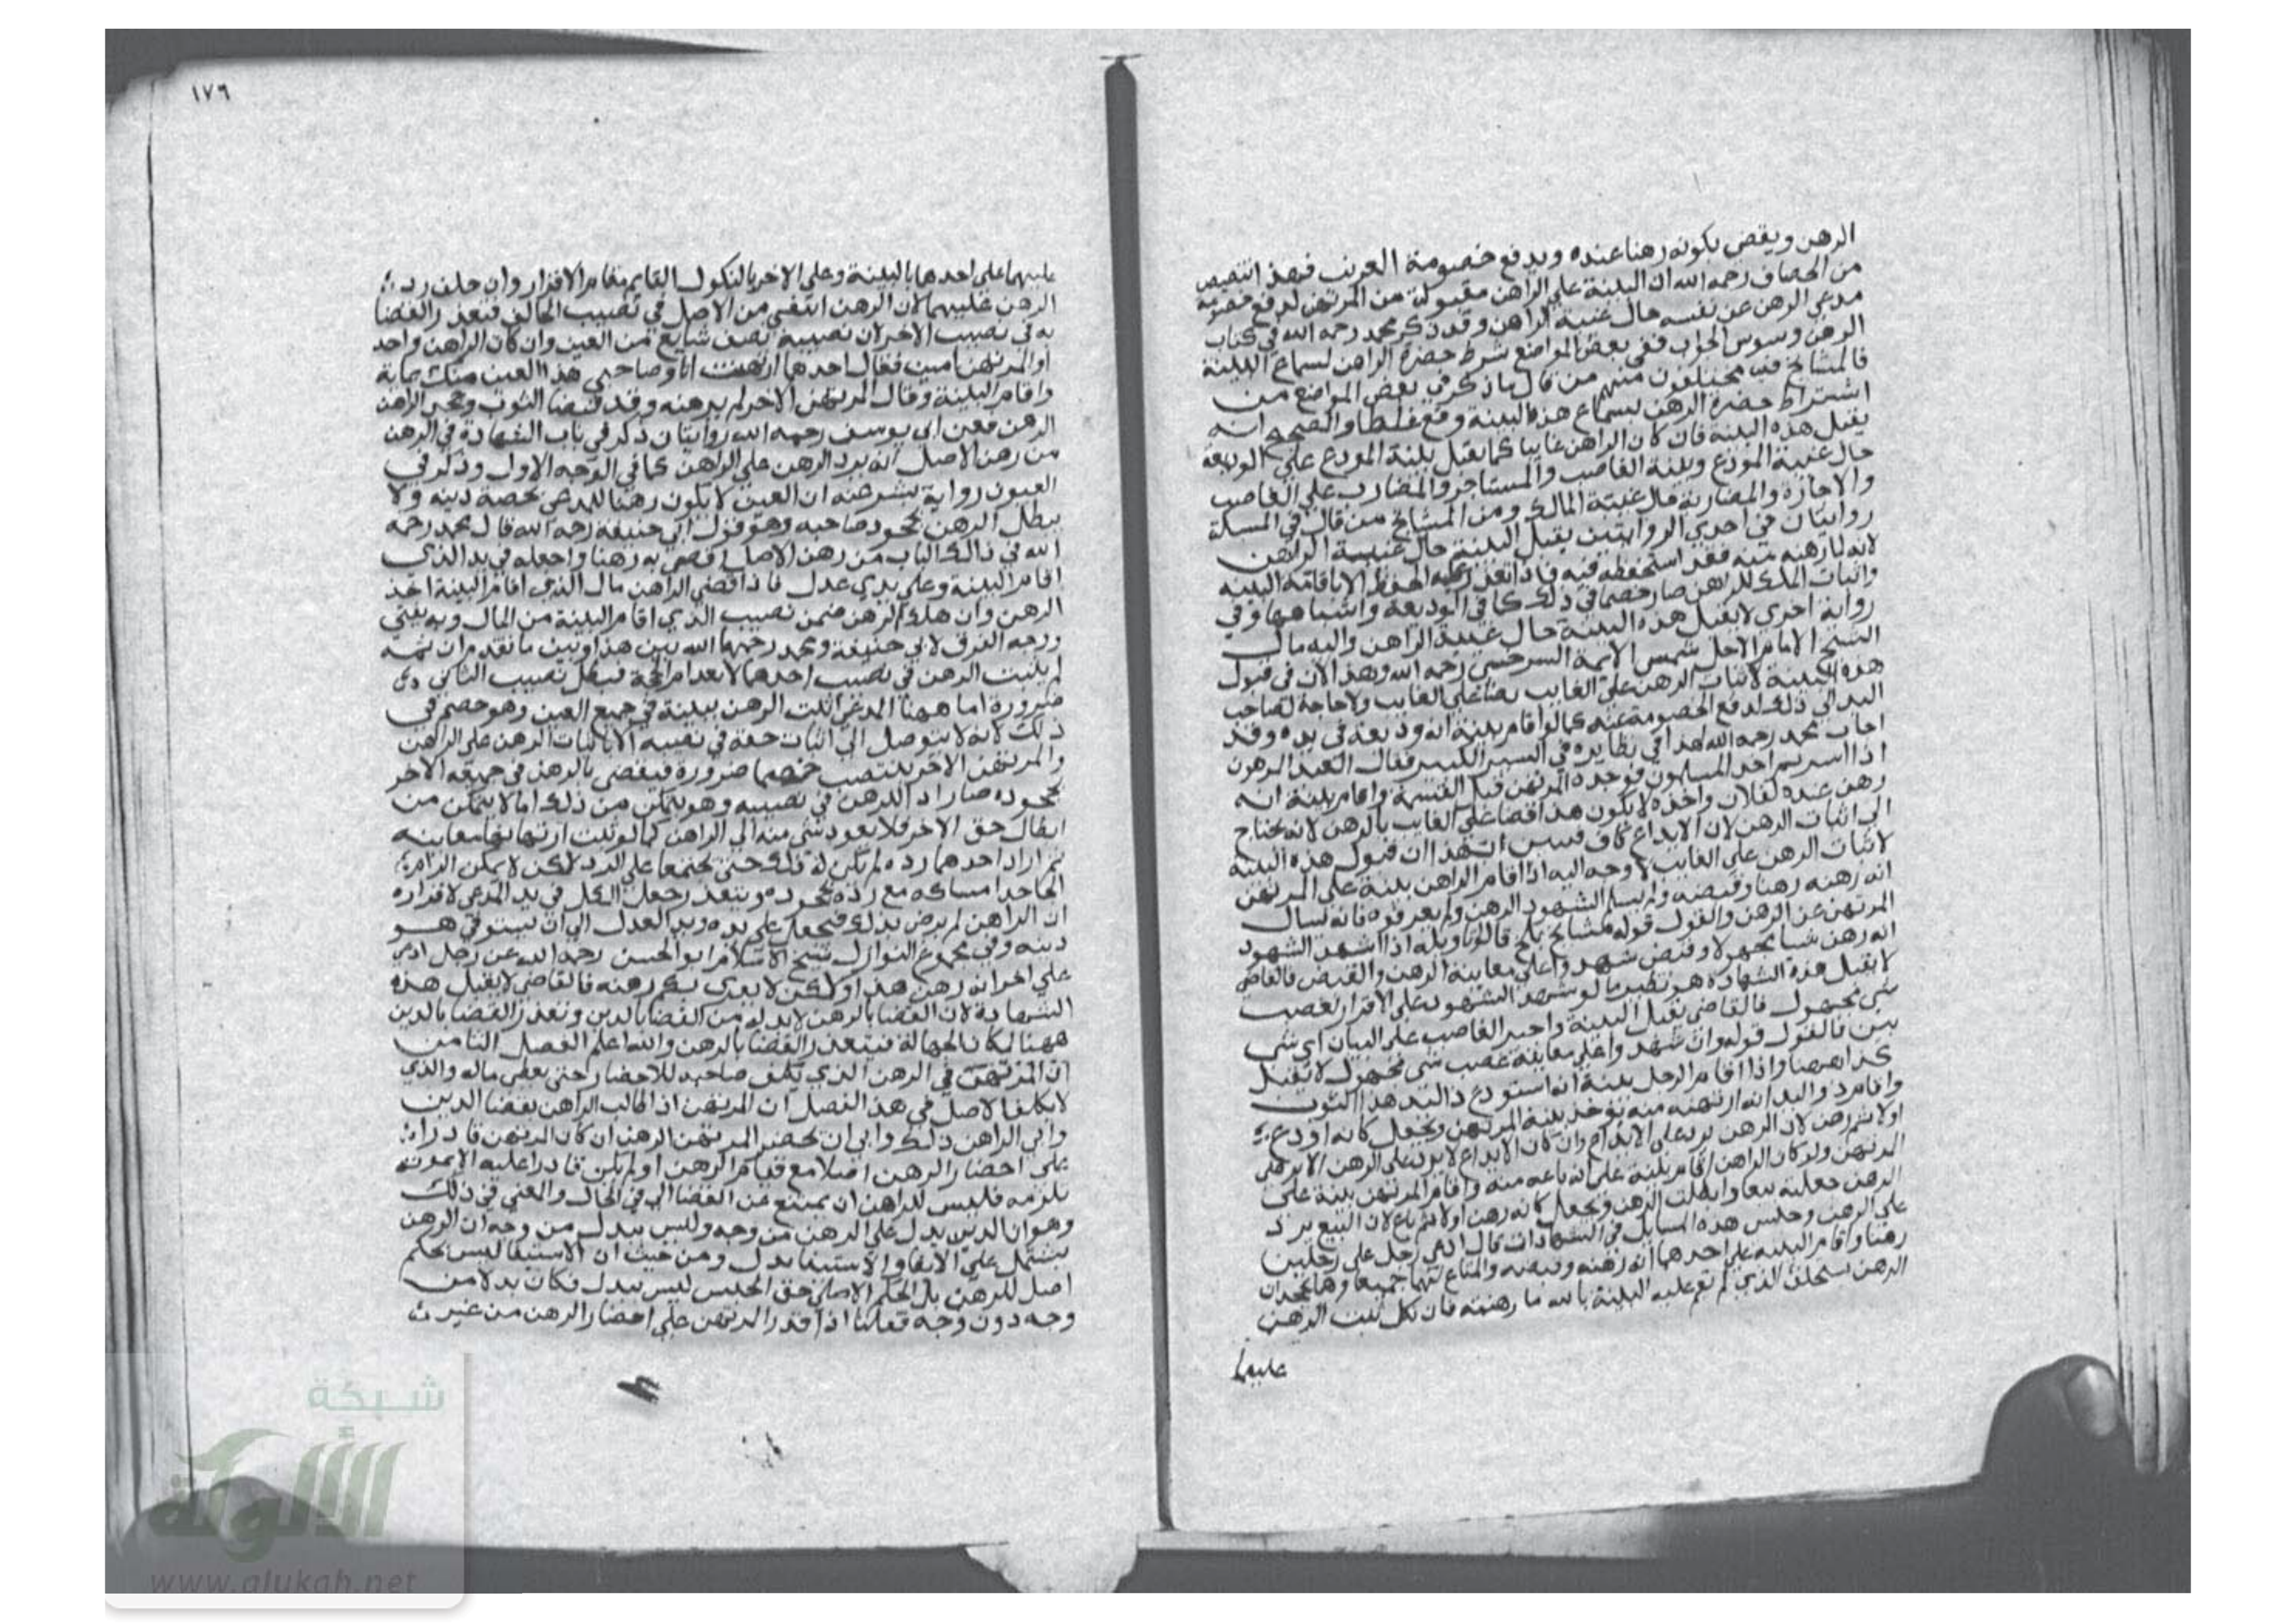 الرهن ويقضي بكونه رهنا عنده ويدفع خصومة الغريب فهذا تنصيص
من الخصاف رحمه الله ان البينة على الراهن مقبولة من المرتهن لدفع خصومة
مدعي الرهن عن نفسه حال غيبة الراهن وقد ذكر محمد رحمه الله في كتاب
الرهن وسوس الجواب ففي بعض المواضع شرط حضرة الراهن لسماع البينة
فالمشايخ فيه مختلفون منهم من قال ما ذكر في بعض المواضع من
اشتراط حضرة الرهن لسماع هذه البينة وقع غلطا والصحيح انه
يقبل هذه البينة فان كان الراهن غايبا كما يقبل بينة المودع على الوديعة
حال غيبة المودع وبينة الغاصب والمستاجر والمضارب على الغاصب
والاجازة والمضاربة حال غيبة المالك ومن المشايخ من قال في المسئلة
روايتان في احدي الروايتين يقبل البينة حال غيبة الراهن
لانه لما رهنه منه فقد استحفظه فيه فاذا تعذر عليه الحفظ الا باقامة البينه
واثبات الملك للراهن صار خصما في ذلك كما في الوديعة واشباهها وفي
رواية اخرى لا يقبل هذه البينة حال غيبة الراهن واليه مال
الشيخ الامام الاجل شمس الايمة السرخسي رحمه الله وهذا لان في قبول
هذه البينة لاثبات الرهن على الغايب قضا على الغايب ولا حاجة لصاحب
اليد الي ذلك لدفع الخصومة عنه كما لو اقام بينة انه وديعة في يده وقد
اجاب محمد رحمه الله هذا في نظايره في السير الكبير فقال العبد المرهون
اذا اسر ثم احد المسلمون فوجده المرتهن قبل القسمة واقام بينة انه
رهن عنده لفلان واخذه لا يكون هذا قضا على الغايب بالرهن لانه يحتاج
الي اثبات الرهن لان الايداع كاف فبيس ان هذا ان قبول هذه البينه
لاثبات الرهن على الغايب لا وجه اليه اذا اقام الراهن بينة على المرتهن
انه رهنه رهنا وقبضه ولم يسم الشهود الرهن ولم يعرفوه فانه يسال
المرتهن عن الرهن والقول قوله مشايخ بلخ قالوا تاويله اذا شهد الشهود
انه رهن شيا مجهولا وقبض شهدوا على معاينة الرهن والقبض فالقاضي
لا يقبل هذه الشهادة هو نظير ما لو شهد الشهود على الاقرار بغصب
شي مجهول فالقاضي يقبل البينة واجبر الغاصب على البيان اي شي
بين فالقول قوله وان شهدوا على معاينة غصب شي مجهول لا يقبل
كذا ههنا واذا اقام الرجل بينة انه استودع ذا اليد هذا الثوب
واقام ذو اليد انه ارتهنه منه يوخذ بينة المرتهن ويجعل كانه اودع
اولا ثم رهن لان الرهن يرد على الايداع وان كان الايداع لا يرد على الرهن الا برضى
المرتهن ولو كان الراهن اقام بينة على انه باعه منه واقام المرتهن بينة على
الرهن جعلته بيعا وابطلت الرهن ويجعل كانه رهن اولا ثم باع لان البيع يرد
على الرهن وجنس هذه المسايل في الشهادات قال ادعى رجل على رجلين
رهنا واقام البينه على احدهما انه رهنه وقبضه والمتاع لهما جميعا وهما يجحدان
الرهن يستحلف الذي لم تقم عليه البينة بالله ما رهنته فان نكل ثبت الرهن
عليهما
١٧٦
عليهما على احدهما بالبينة وعلى الاخر بالنكول القايم مقام الاقرار وان حلف رد
الرهن عليهما لان الرهن انتفى من الاصل في نصيب الحالف فتعذر القضا
به في نصيب الاخر ان نصيبه نصف شايع من العين وان كان الراهن واحد
او المرتهن اثنين فقال احدهما ارتهنت انا وصاحبي هذا العين منك بماية
واقام البينة وقال المرتهن الاخر لم يرهنه وقد قبضا الثوب وجحد الراهن
الرهن فعن ابي يوسف رحمه الله روايتان ذكر في باب الشهادة في الرهن
من رهن الاصل انه يرد الرهن على الراهن كما في الوجه الاول وذكر في
العيون رواية بشر عنه ان العين لا يكون رهنا للمدعي بحصة دينه ولا
يبطل الرهن بجحود صاحبه وهو قول ابي حنيفة رحمه الله قال محمد رحمه
الله في ذلك الباب من رهن الاصل اقضي به رهنا واجعله في يد الذي
اقام البينة وعلى يدي عدل فاذا قضى الراهن مال الذي اقام البينة اخذ
الرهن وان هلك الرهن ضمن نصيب الذي اقام البينة من المال وبه يفتي
ووجه الفرق لابي حنيفة ومحمد رحمهما الله بين هذا وبين ما تقدم ان ثمه
لم يثبت الرهن في نصيب احدهما لانعدام الحجة فبطل نصيب الثاني
ضرورة اما ههنا المدعي اثبت الرهن ببينة في جميع العين وهو خصم في
ذلك لانه لا يتوصل الي اثبات حقه في نصيبه الا باثبات الرهن على الراهن
والمرتهن الاخر ينتصب خصما ضرورة فيقضى بالرهن في جميعه الاخر
بجحوده صار راد الرهن في نصيبه وهو يتمكن من ذلك اما لا يتمكن من
ابطال حق الاخر فلا يعود شي منه الي الراهن كما لو ثبت ارتهانهما معاينه
ثم اراد احدهما رده لم يكن له ذلك حتى يجتمعا على الرد لكن لا يمكن الزام
الجاحد امساكه مع رده بجحوده ويتعذر جعل الكل في يد المدعي لاقراره
ان الراهن لم يرض بذلك فيجعل على يده ويد العدل الي ان يستوفي هو
دينه وفي مجموع النوازل شيخ الاسلام ابو الحسن رحمه الله عن رجل ادعى
على اخر انه رهن هذا ولكن لا يدري بكم رهنه فالقاضي لا يقبل هذه
الشهادة لان القضا بالرهن لا بد له من القضا بالدين وتعذر القضا بالدين
ههنا لمكان الجهالة فيتعذر القضا بالرهن والله اعلم الفصل الثامن
ان المرتهن في الرهن الذي يكلف صاحبه للاحضار حتى يعطى ماله والذي
لا يكلف الاصل في هذا الفصل ان المرتهن اذا طالب الراهن بقضا الدين
وابي الراهن ذلك وابي ان يحضر المرتهن الرهن ان كان المرتهن قادرا
على احضار الرهن اصلا مع قيام الرهن او لم يكن قادرا عليه الا بمونة
تلزمه فليس للراهن ان يمتنع عن القضا الي في الحال والمعني في ذلك
وهو ان الدين بدل على الرهن من وجه وليس ببدل من وجه ان الرهن
يشتمل على الايفا والاستيفا بدل ومن حيث ان الاستيفا ليس بحكم
اصل للرهن بل الحكم الاصلي حق الحبس ليس ببدل فكان بدلا من
وجه دون وجه فقلنا اذا قدر المرتهن على احضار الرهن من غير
شبكة
الألوكة
www.alukah.net